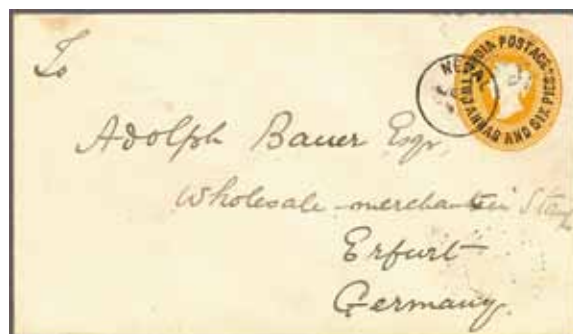 To
INDIA POSTAGE
TWO ANNAS AND SIX PIES
NEPAL
Adolph Bauer Esqr,
Wholesale merchant in
Erfurt
Germany.